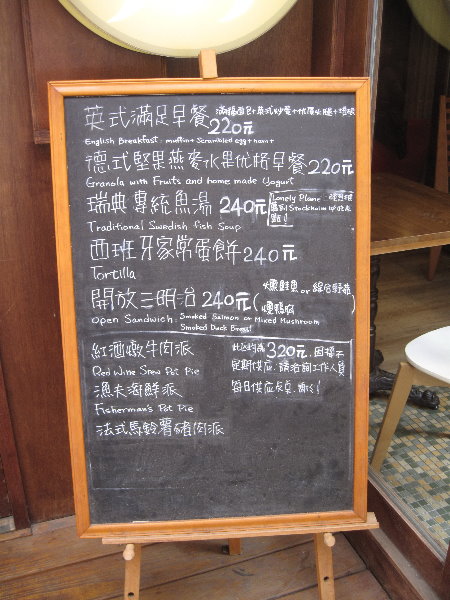 英式滿足早餐 220元
English Breakfast. muffin+ scrambled egg+ ham+
德式堅果燕麥水果優格早餐 220元
Granola with Fruits and home made Yogurt
瑞典傳統魚湯 240元
Lonely Plane
Stockholm
Traditional Swedish fish Soup
西班牙家常蛋餅 240元
Tortilla
開放三明治 240元 ( 燻鮭魚 or 綜合野菇
燻鴨胸
Open Sandwich. Smoked Salmon or Mixed Mushroom
Smoked Duck Breast
紅酒燉牛肉派
Red Wine Stew Pot Pie
漁夫海鮮派
Fisherman's Pot Pie
法式馬鈴薯豬肉派
320元,因標示
定期供应,請洽詢工作人員
每日供应